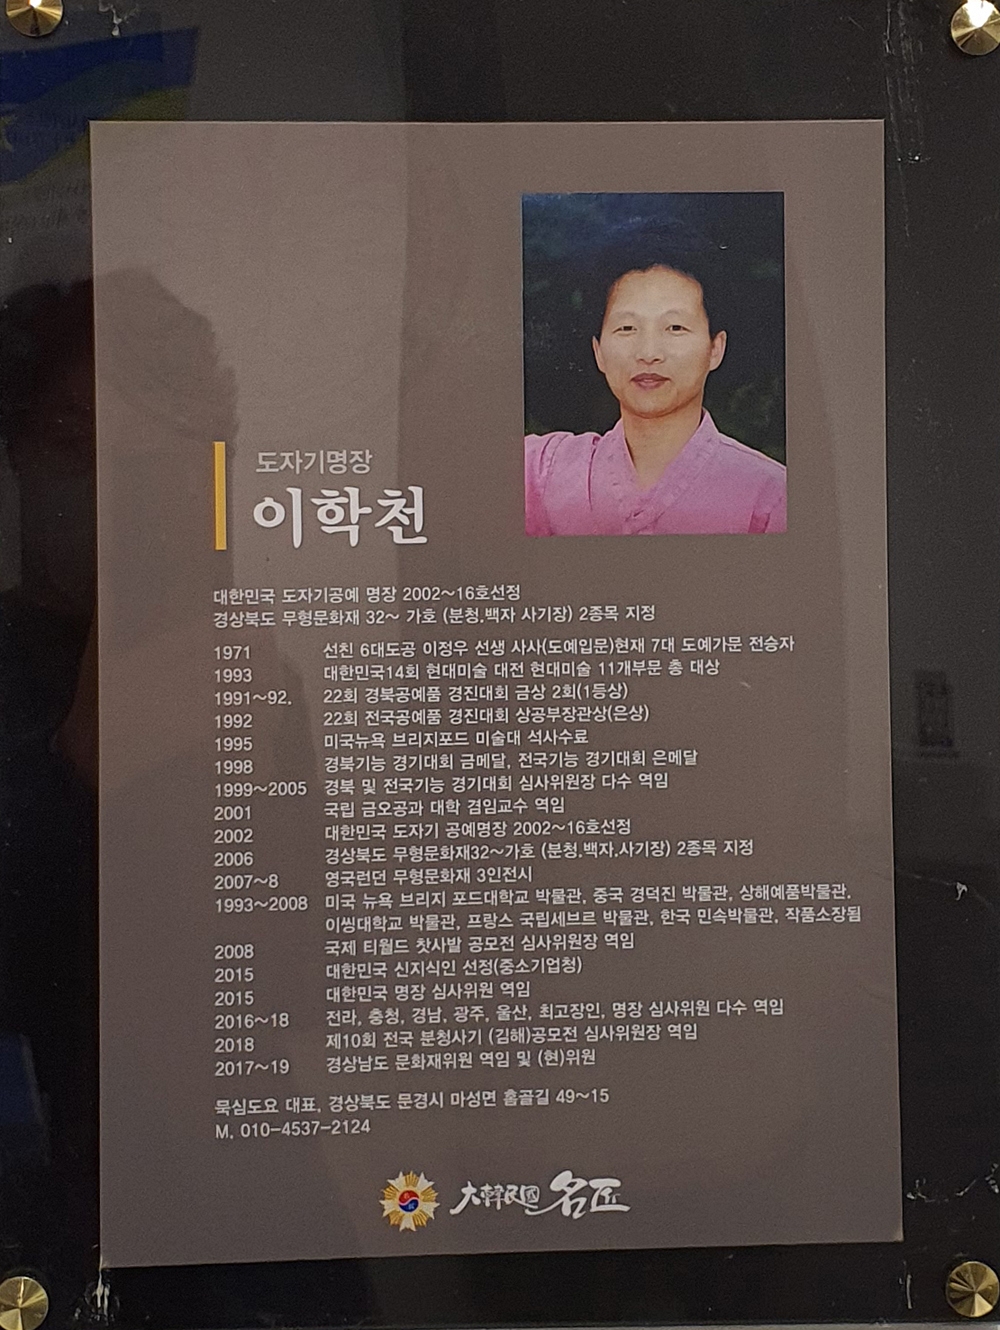 도자기명장
이학천
대한민국 도자기공예 명장 2002~16호선정
경상북도 무형문화재 32~ 가호 (분청.백자 사기장) 2종목 지정
1971 선친 6대도공 이정우 선생 사사(도예입문)현재 7대 도예가문 전승자
1993 대한민국14회 현대미술 대전 현대미술 11개부문 총 대상
1991~92. 22회 경북공예품 경진대회 금상 2회(1등상)
1992 22회 전국공예품 경진대회 상공부장관상(은상)
1995 미국뉴욕 브리지포드 미술대 석사수료
1998 경북기능 경기대회 금메달, 전국기능 경기대회 은메달
1999~2005 경북 및 전국기능 경기대회 심사위원장 다수 역임
2001 국립 금오공과 대학 겸임교수 역임
2002 대한민국 도자기 공예명장 2002~16호선정
2006 경상북도 무형문화재32~가호 (분청.백자.사기장) 2종목 지정
2007~8 영국런던 무형문화재 3인전시
1993~2008 미국 뉴욕 브리지 포드대학교 박물관, 중국 경덕진 박물관, 상해예품박물관,
이씽대학교 박물관, 프랑스 국립세브르 박물관, 한국 민속박물관, 작품소장됨
2008 국제 티월드 찻사발 공모전 심사위원장 역임
2015 대한민국 신지식인 선정(중소기업청)
2015 대한민국 명장 심사위원 역임
2016~18 전라, 충청, 경남, 광주, 울산, 최고장인, 명장 심사위원 다수 역임
2018 제10회 전국 분청사기 (김해)공모전 심사위원장 역임
2017~19 경상남도 문화재위원 역임 및 (현)위원
묵심도요 대표, 경상북도 문경시 마성면 홈골길 49~15
M. 010-4537-2124
大韓民國 名匠